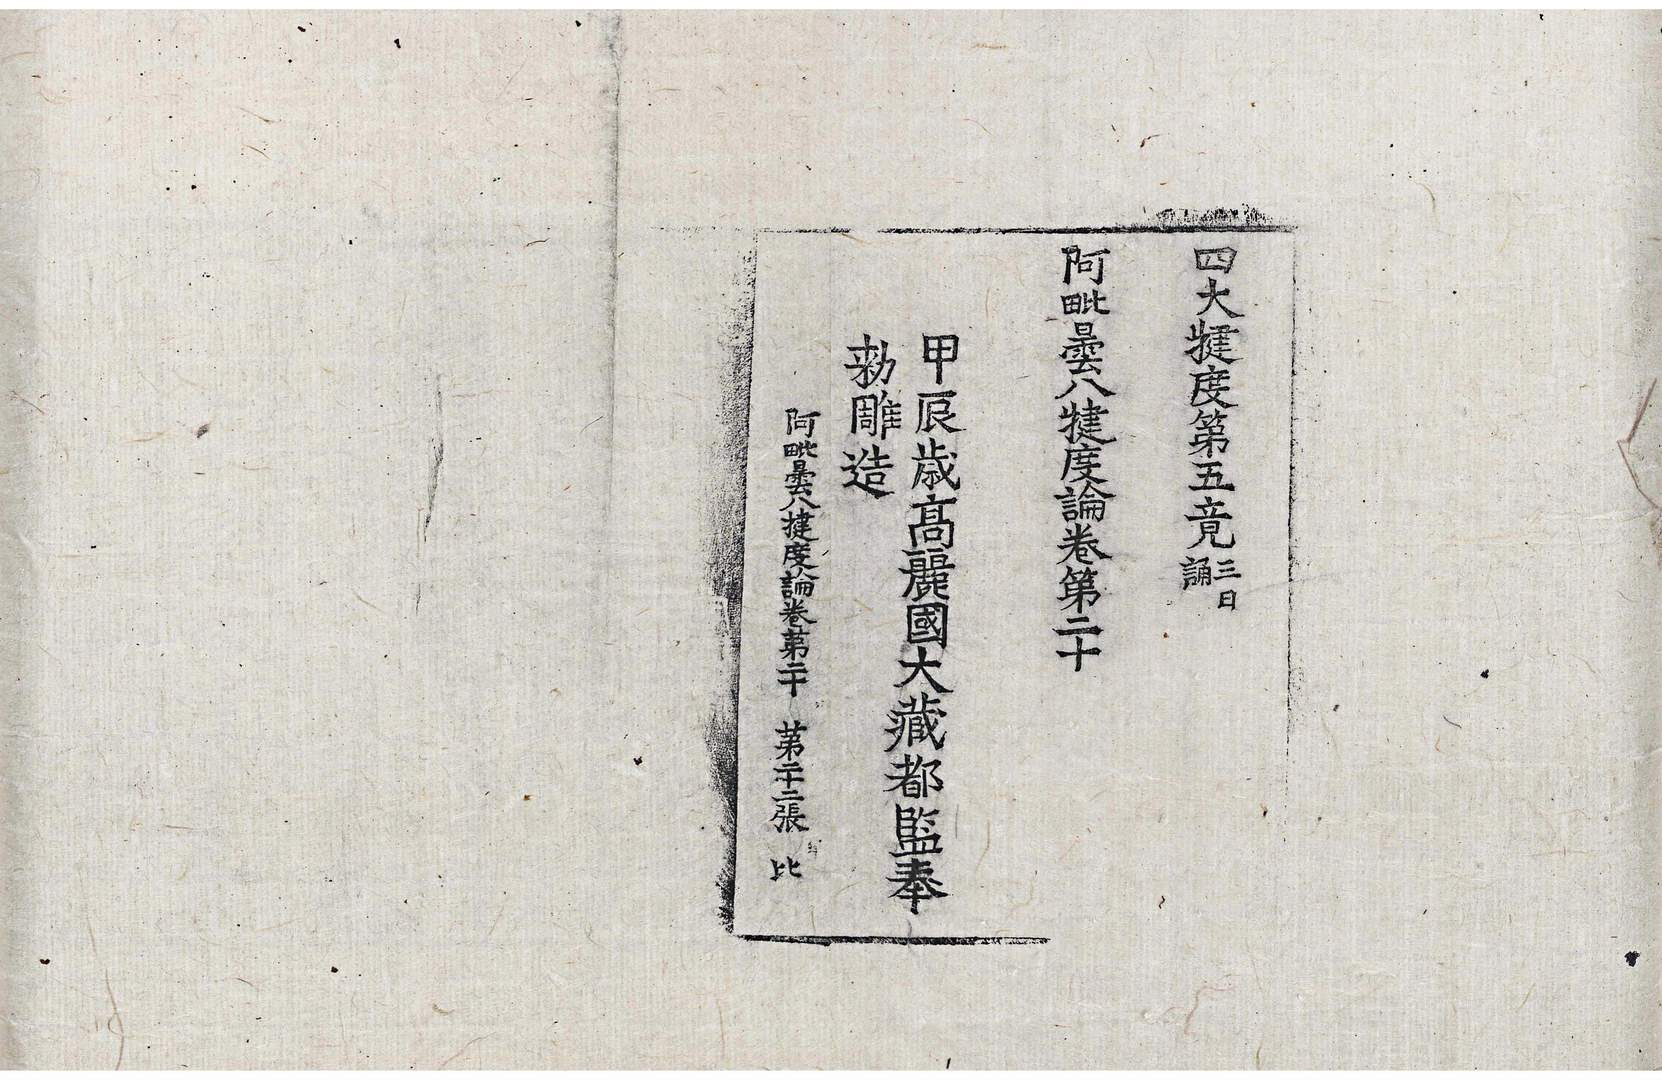 四大揵度第五竟三日誦
阿毗曇八揵度論卷第二十
甲辰歳高麗國大藏都監奉
勅雕造
阿毗曇八揵度論卷第二十　第二十二張　比